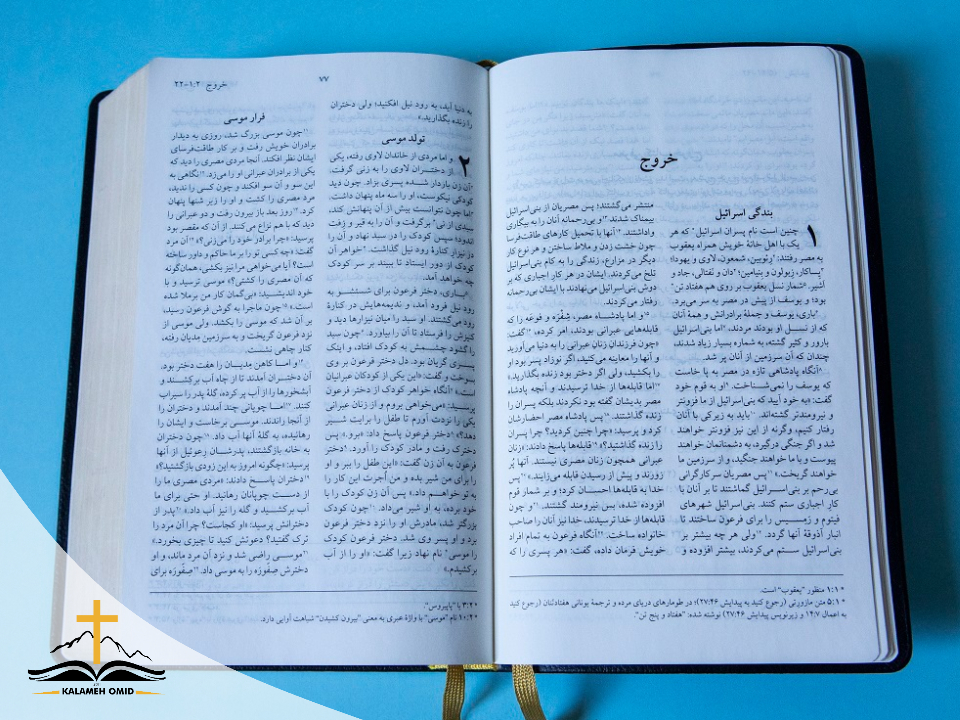 خروج
بندگی اسرائیل
۱ چنین است نام پسران اسرائیل* که هر
یک با اهل خانهٔ خویش همراه یعقوب
به مصر رفتند: ۲رِئوبین، شمعون، لاوی و یهودا؛
۳یساکار، زبولون و بنیامین؛ ۴دان و نَفتالی، جاد و
اَشیر. ۵شمار نسل یعقوب بر روی هم هفتاد تن*
بود؛ و یوسف از پیش در مصر به سر می‌برد.
۶باری، یوسف و جملهٔ برادرانش و همهٔ آنان
که از نسل او بودند مردند، ۷اما بنی‌اسرائیل
بارور و کثیر گشته، به شماره بسیار زیاد شدند،
چندان که آن سرزمین از آنان پر شد.
۸آنگاه پادشاهی تازه در مصر به پا خاست
که یوسف را نمی‌شناخت. ۹او به قوم خود
گفت: «به خود آیید که بنی‌اسرائیل از ما فزونتر
و نیرومندتر گشته‌اند. ۱۰باید به زیرکی با آنان
رفتار کنیم، وگرنه از این نیز فزونتر خواهند
شد و اگر جنگی درگیرد، به دشمنانمان خواهند
پیوست و با ما خواهند جنگید، و از سرزمین ما
خواهند گریخت.» ۱۱پس مصریان سرکارگرانی
بی‌رحم بر بنی‌اسرائیل گماشتند تا بر آنان با
کار اجباری ستم کنند. بنی‌اسرائیل شهرهای
فیتوم و رَمِسیس را برای فرعون ساختند تا
انبار آذوقهٔ آنها گردد. ۱۲ولی هر چه بیشتر بر
بنی‌اسرائیل ستم می‌کردند، بیشتر افزوده و
منتشر می‌گشتند؛ پس مصریان از بنی‌اسرائیل
بیمناک شدند ۱۳و بی‌رحمانه آنان را به بیگاری
واداشتند. ۱۴آنها با تحمیل کارهای طاقت‌فرسا
چون خشت زدن و ملاط ساختن و هر نوع کار
دیگر در مزارع، زندگی را به کام بنی‌اسرائیل
تلخ می‌کردند. ایشان در هر کار اجباری که بر
دوش بنی‌اسرائیل می‌نهادند با ایشان بی‌رحمانه
رفتار می‌کردند.
۱۵و اما پادشاه مصر، شِفْرَه و فوعَه را که
قابله‌هایی عبرانی بودند، امر کرده، ۱۶گفت:
«چون فرزندان زنان عبرانی را به دنیا می‌آورید
و آنها را معاینه می‌کنید، اگر نوزاد پسر بود او
را بکشید، ولی اگر دختر بود زنده بگذارید.»
۱۷اما قابله‌ها از خدا ترسیدند و آنچه پادشاه
مصر بدیشان گفته بود نکردند بلکه پسران را
زنده گذاشتند. ۱۸پس پادشاه مصر احضارشان
کرد و پرسید: «چرا چنین کردید؟ چرا پسران
را زنده گذاشتید؟» ۱۹قابله‌ها پاسخ دادند: «زنان
عبرانی همچون زنان مصری نیستند. آنها پُر
زورند و پیش از رسیدن قابله می‌زایند.» ۲۰پس
خدا به قابله‌ها احسان کرد؛ و بر شمار قوم
افزوده شده، بس نیرومند گشتند. ۲۱و چون
قابله‌ها از خدا ترسیدند، خدا نیز آنان را صاحب
خانواده ساخت. ۲۲آنگاه فرعون به تمام افراد
خویش فرمان داده، گفت: «هر پسری را که
* ۱:۱ منظور "یعقوب" است.
* ۵:۱ متن مازورتی (رجوع کنید به پیدایش ۲۷:۴۶)؛ در طومارهای دریای مرده و ترجمهٔ یونانی هفتادتنان (رجوع کنید
به اعمال ۱۴:۷ و زیرنویس پیدایش ۲۷:۴۶) نوشته شده: "هفتاد و پنج تن".
۷۷
خروج ۱:۲–۲۲
به دنیا آید، به رود نیل افکنید؛ ولی دختران
را زنده بگذارید.»
تولد موسی
۲ و اما مردی از خاندان لاوی رفته، یکی
از دختران لاوی را به زنی گرفت.
۲آن زن باردار شده پسری بزاد. چون دید
کودکی نیکوست، او را سه ماه پنهان داشت.
۳اما چون نتوانست بیش از آن پنهانش کند،
سبدی از نی* برگرفت و آن را به قیر و زِفت
اندود؛ سپس کودک را در سبد نهاد و آن را
در نیزارِ کنارهٔ رود نیل گذاشت. ۴خواهر آن
کودک از دور ایستاد تا ببیند بر سر کودک
چه خواهد آمد.
۵باری، دختر فرعون برای شستشو به
رود نیل فرود آمد، و ندیمه‌هایش در کنارهٔ
رود می‌گشتند. او سبد را میان نیزارها دید و
کنیزش را فرستاد تا آن را بیاورد. ۶چون سبد
را گشود چشمش به کودک افتاد، و اینک
پسری گریان بود. دل دختر فرعون بر وی
بسوخت و گفت: «این یکی از کودکان عبرانیان
است.» ۷آنگاه خواهر کودک از دختر فرعون
پرسید: «می‌خواهی بروم و از زنان عبرانی
یکی را نزدت آورم تا طفل را برایت شیر
دهد؟» ۸دختر فرعون پاسخ داد: «برو.» پس
دخترک رفت و مادر کودک را آورد. ۹دختر
فرعون به آن زن گفت: «این طفل را ببر و او
را برای من شیر بده و من اجرت این کار را
به تو خواهم داد.» پس آن زن کودک را با
خود برده، به او شیر می‌داد. ۱۰چون کودک
بزرگتر شد، مادرش او را نزد دختر فرعون
برد و او پسر وی شد. دختر فرعون کودک
را موسی* نام نهاد زیرا گفت: «او را از آب
برکشیدم.»
فرار موسی
۱۱چون موسی بزرگ شد، روزی به دیدار
برادران خویش رفت و بر کار طاقت‌فرسای
ایشان نظر افکند. آنجا مردی مصری را دید که
یکی از برادران عبرانی او را می‌زد. ۱۲نگاهی به
این سو و آن سو افکند و چون کسی را ندید،
مرد مصری را کشت و او را زیر شنها پنهان
کرد. ۱۳روز بعد باز بیرون رفت و دو عبرانی را
دید که با هم نزاع می‌کنند. از آن که مقصر بود
پرسید: «چرا برادر خود را می‌زنی؟» ۱۴آن مرد
گفت: «چه کسی تو را بر ما حاکم و داور ساخته
است؟ آیا می‌خواهی مرا نیز بکشی، همان‌گونه
که آن مصری را کشتی؟» موسی ترسید و با
خود اندیشید: «بی‌گمان کار من برملا شده
است.» ۱۵چون ماجرا به گوش فرعون رسید،
بر آن شد که موسی را بکشد. ولی موسی از
نزد فرعون گریخت و به سرزمین مِدیان رفته،
کنار چاهی نشست.
۱۶و اما کاهن مِدیان را هفت دختر بود.
آن دختران آمدند تا از چاه آب برکِشند و
آبشخورها را از آب پر کرده، گلهٔ پدر را سیراب
کنند. ۱۷اما چوپانی چند آمدند و دختران را
از آنجا راندند. موسی برخاست و ایشان را
رهانیده، به گلهٔ آنها آب داد. ۱۸چون دختران
به خانه بازگشتند، پدرشان رِعوئیل از آنها
پرسید: «چگونه امروز به این زودی بازگشتید؟»
۱۹دختران پاسخ دادند: «مردی مصری ما را
از دست چوپانان رهانید. او حتی برای ما
آب برکشید و گله را نیز آب داد.» ۲۰پدر از
دخترانش پرسید: «او کجاست؟ چرا آن مرد را
ترک گفتید؟ دعوتش کنید تا چیزی بخورد.»
۲۱موسی راضی شد و نزد آن مرد ماند، و او
دخترش صِفّورَه را به موسی داد. ۲۲صِفّورَه برای
* ۳:۲ یا "پاپیروس".
* ۱۰:۲ نام "موسی" با واژهٔ عبری به معنی "بیرون کشیدن" شباهت آوایی دارد.
KALAMEH OMID